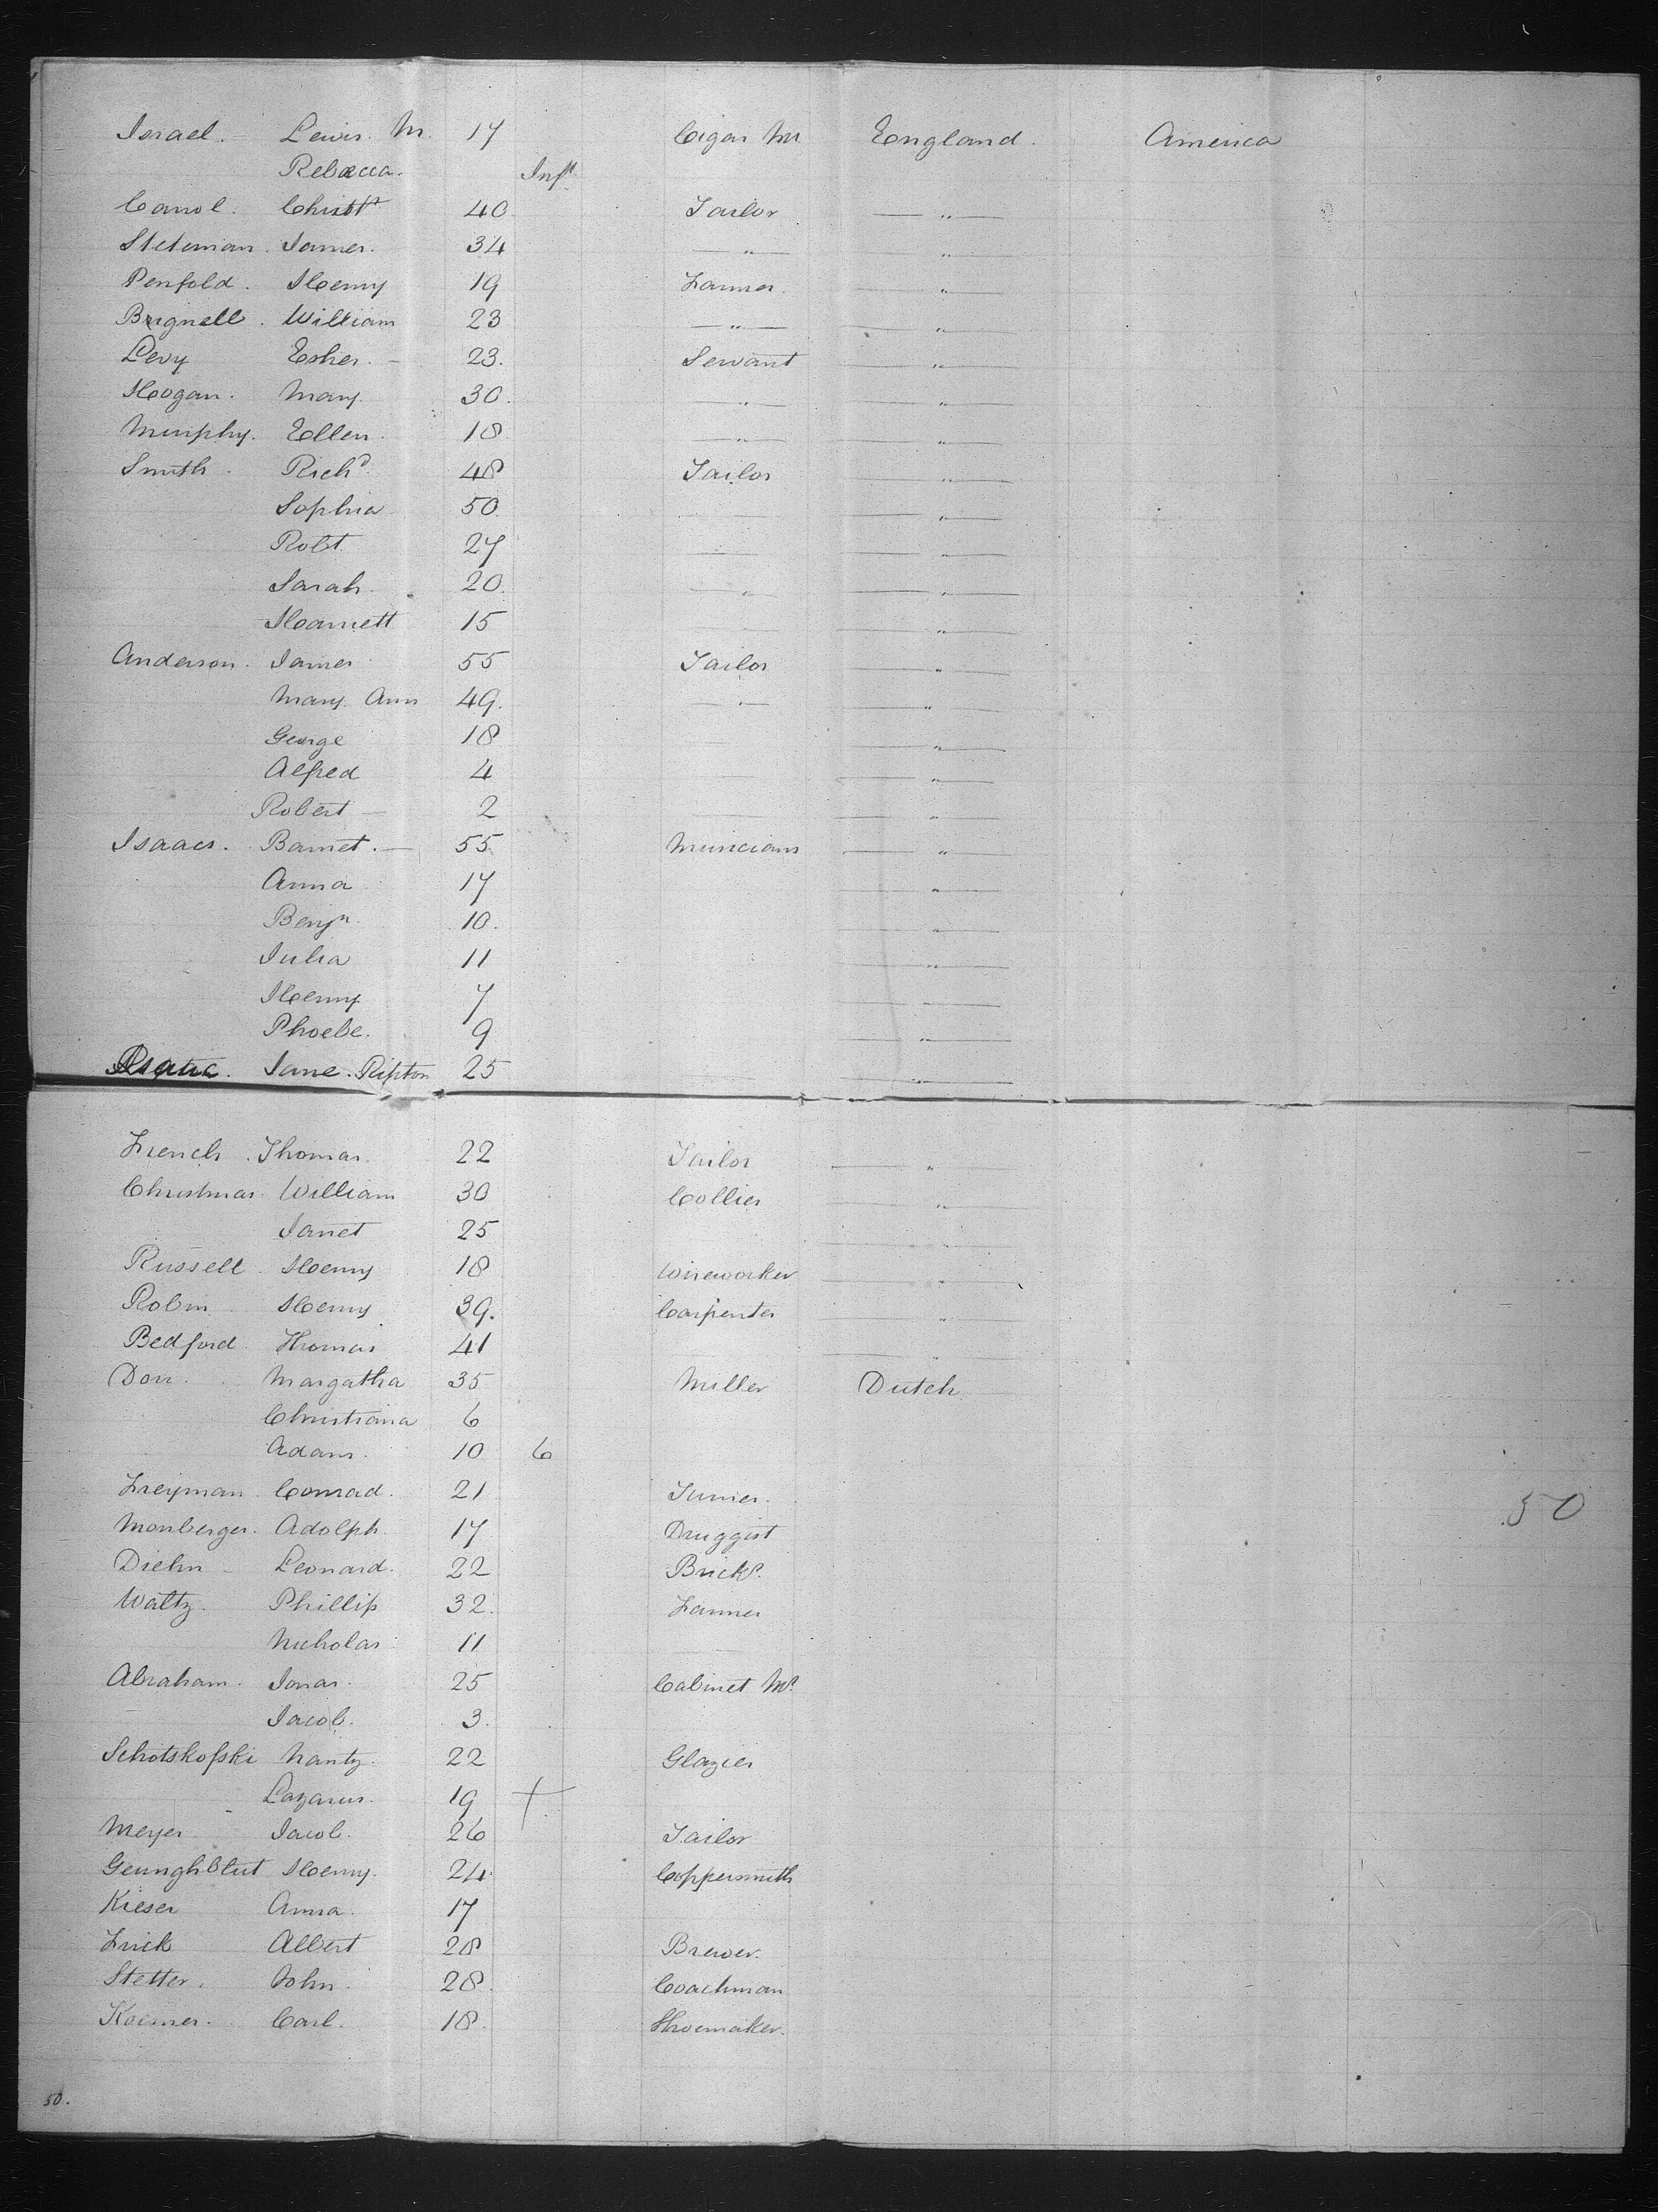 Israel. Lewis. M. 17 Cigar M England. America
Rebecca. Inft
Carrol. Christr 40 Tailor — " —
Steteman. James. 34 — " — — " —
Penfold. Henry 19 Farmer. — " —
Brignell. William 23 — " — — " —
Levy Esher. — 23. Servant — " —
Hogan. Mary. 30. — " — — " —
Murphy. Ellen. 18 — " — — " —
Smith. Richd 48 Tailor — " —
Sophia 50. — " —
Robt. 27 — — " —
Sarah. 20. — " — — " —
Harnett 15 — " —
Anderson. James 55 Tailor — " —
Mary Ann 49. — " — — " —
George 18 — " —
Alfred 4 — " —
Robert — 2 — " —
Isaacs. Barnet. — 55 Musicians — " —
Anna 17 — " —
Benjn 10. — " —
Julia 11 — " —
Henry 7 — " —
Phoebe. 9 — " —
Jane. Ripton 25 — " —
French. Thomas. 22 Tailor — " —
Christmas. William 30 Collier — " —
Janet 25 — " —
Russell. Henry 18 Wireworker — " —
Robin Henry 39. Carpenter — " —
Bedford. Thomas 41 — " —
Dorr. Margatha 35 Miller Dutch.
Christiana 6
Adam. 10 6
Freyman. Conrad. 21 Turner.
Monberger. Adolph. 17 Druggist 50
Diehn — Leonard. 22 Brickr.
Waltz. Phillip 32. Farmer
Nicholas 11
Abraham. Jonas. 25 Cabinet Mr
Jacob. 3.
Schotskofski Nantz. 22 Glazier
Lazarus. 19 +
Meyer. Jacob. 26 Tailor
Geunghblut Henry. 24. Coppersmith
Kieser Anna. 17
Frick Albert 28 Brewer.
Stetter. John. 28. Coachman
Koerner. Carl. 18. Shoemaker.
50.